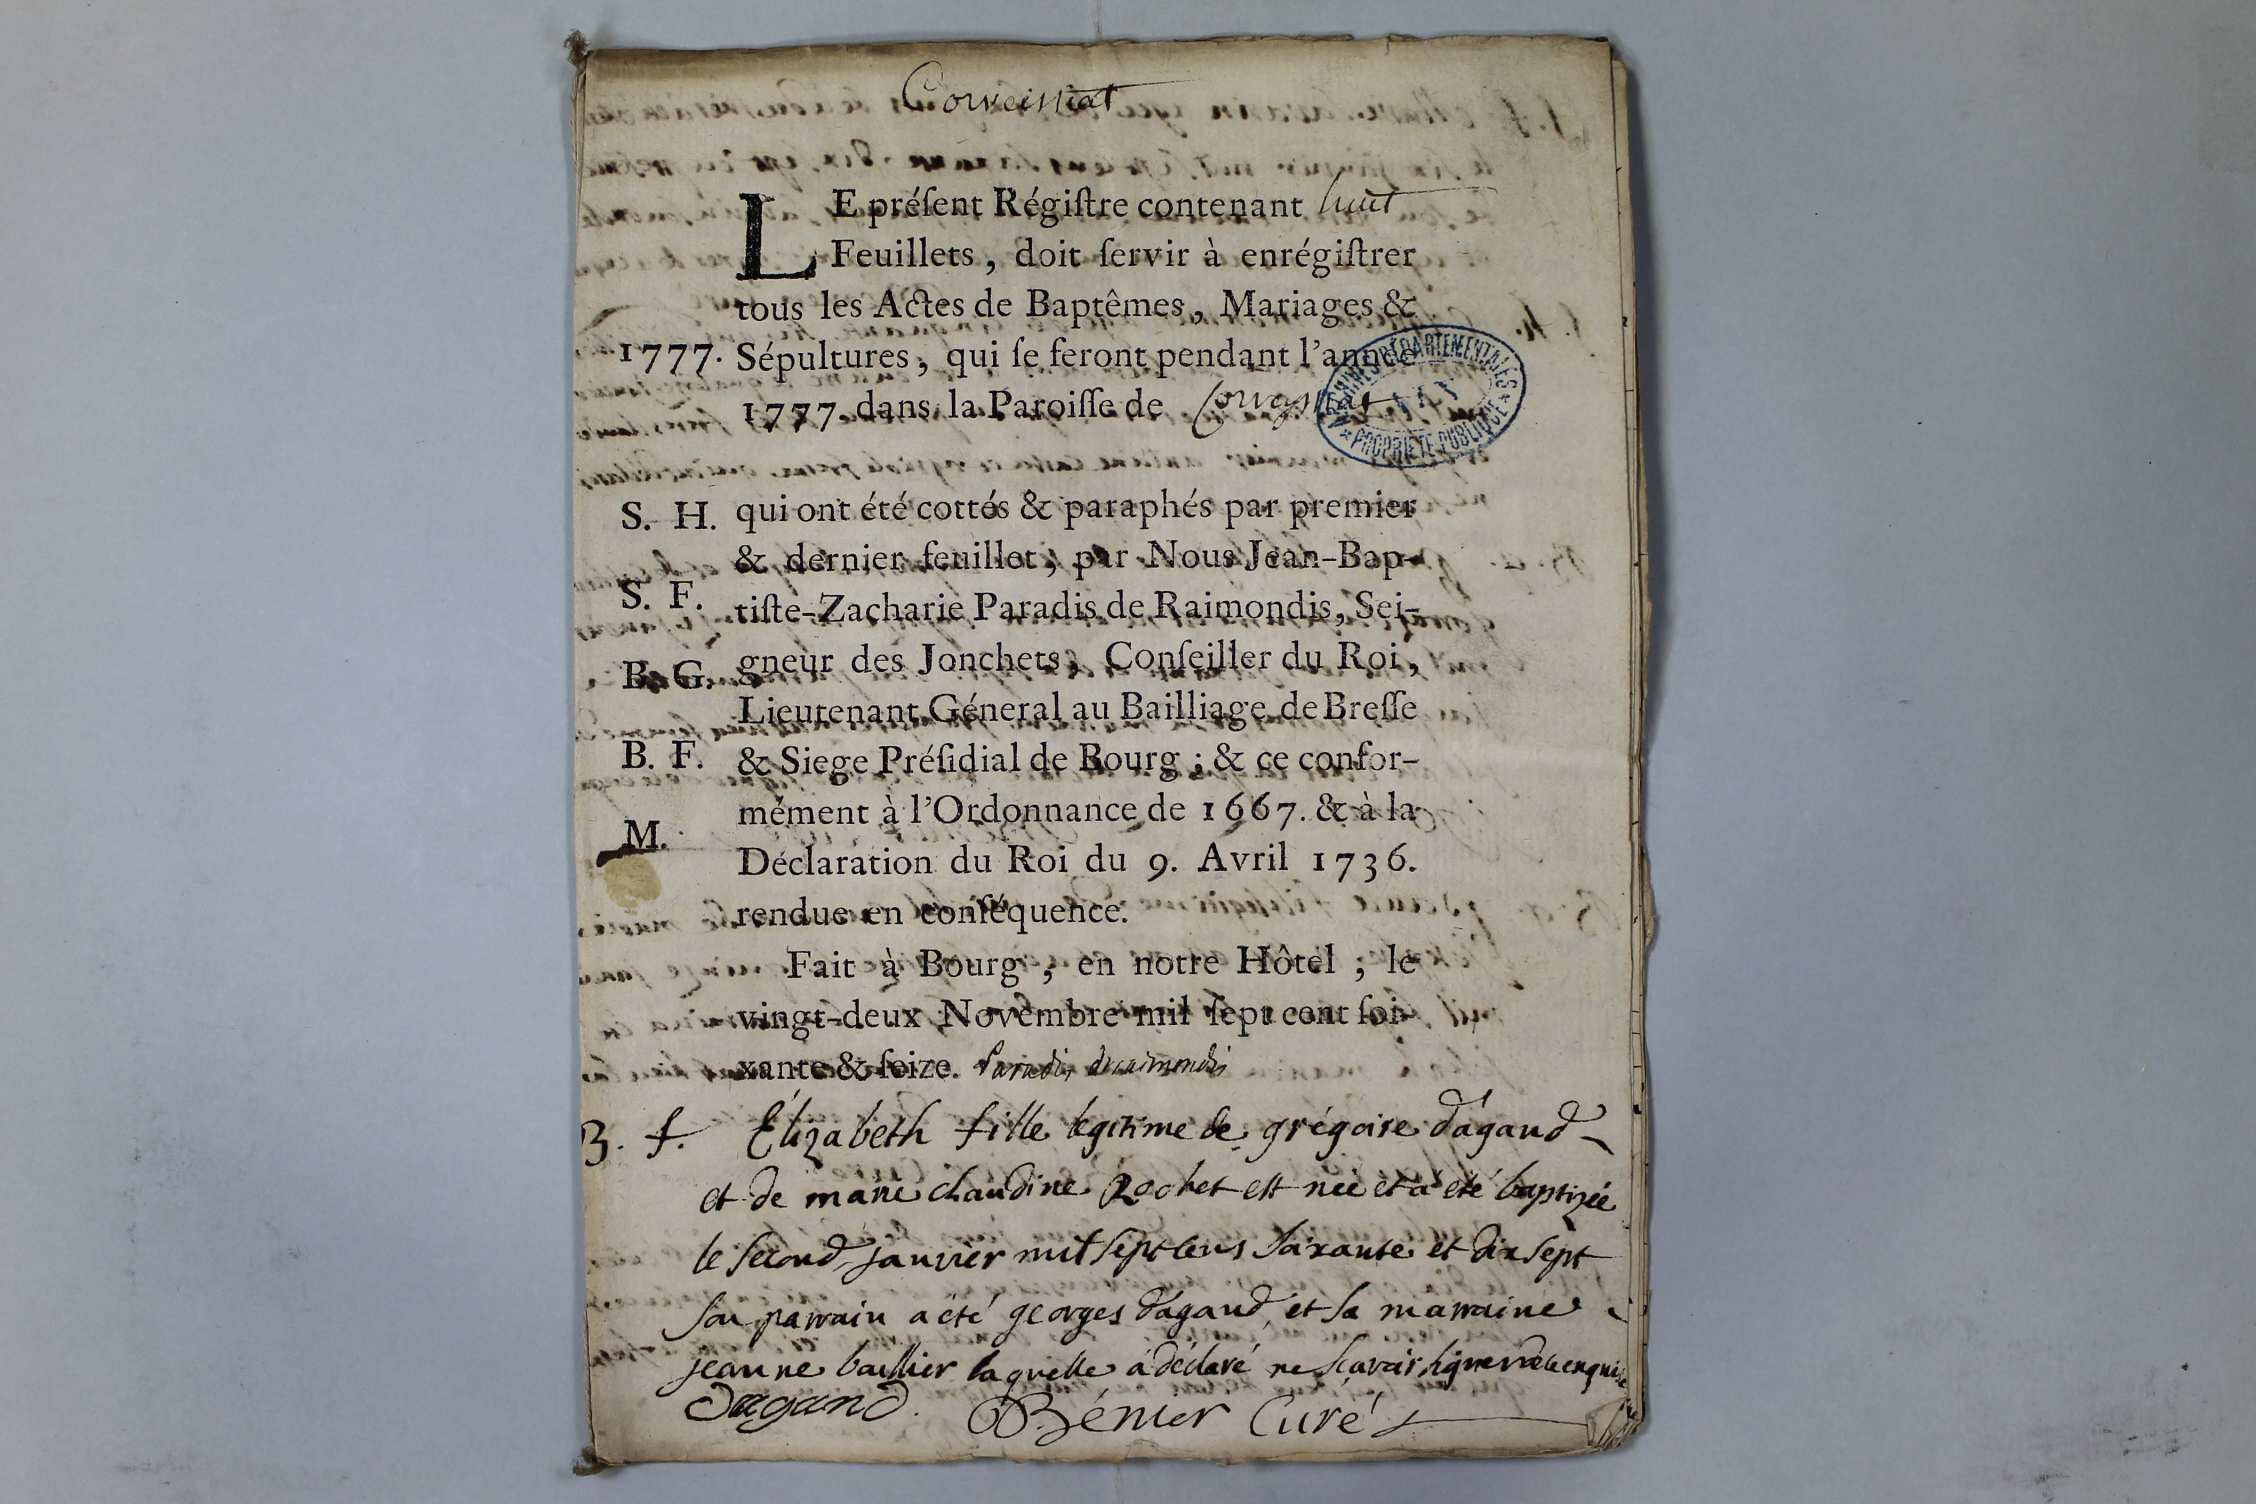 Corveissiat
LE préſent Régiſtre contenant huit
Feuillets, doit ſervir à enrégiſtrer
tous les Actes de Baptêmes, Mariages &
1777. Sépultures, qui ſe feront pendant l'année
1777. dans la Paroiſſe de Corveyssiat
ARCHIVES DÉPARTEMENTALES
AIN
* PROPRIÉTÉ PUBLIQUE *
S. H. qui ont été cottés & paraphés par premier
& dernier feuillet, par Nous Jean-Bap-
S. F. tiſte-Zacharie Paradis de Raimondis, Sei-
B. G. gneur des Jonchets, Conſeiller du Roi,
Lieutenant Géneral au Bailliage de Breſſe
B. F. & Siege Préſidial de Bourg ; & ce confor-
mément à l'Ordonnance de 1667. & à la
M. Déclaration du Roi du 9. Avril 1736.
rendue en conſéquence.
Fait à Bourg, en notre Hôtel ; le
vingt-deux Novembre mil ſept cent ſoi-
xante & ſeize. Paradis deraimondis
B. f. Élizabeth fille légitime de grégoire dagand
et de marie claudine Rochet est née et a été baptizée
le second janvier mil sept cens soixante et dix sept
son parrain a été georges dagand, et sa marraine
jeanne baillier laquelle a déclaré ne sçavoir signer de ce enquise
Dagand. Bénier Curé